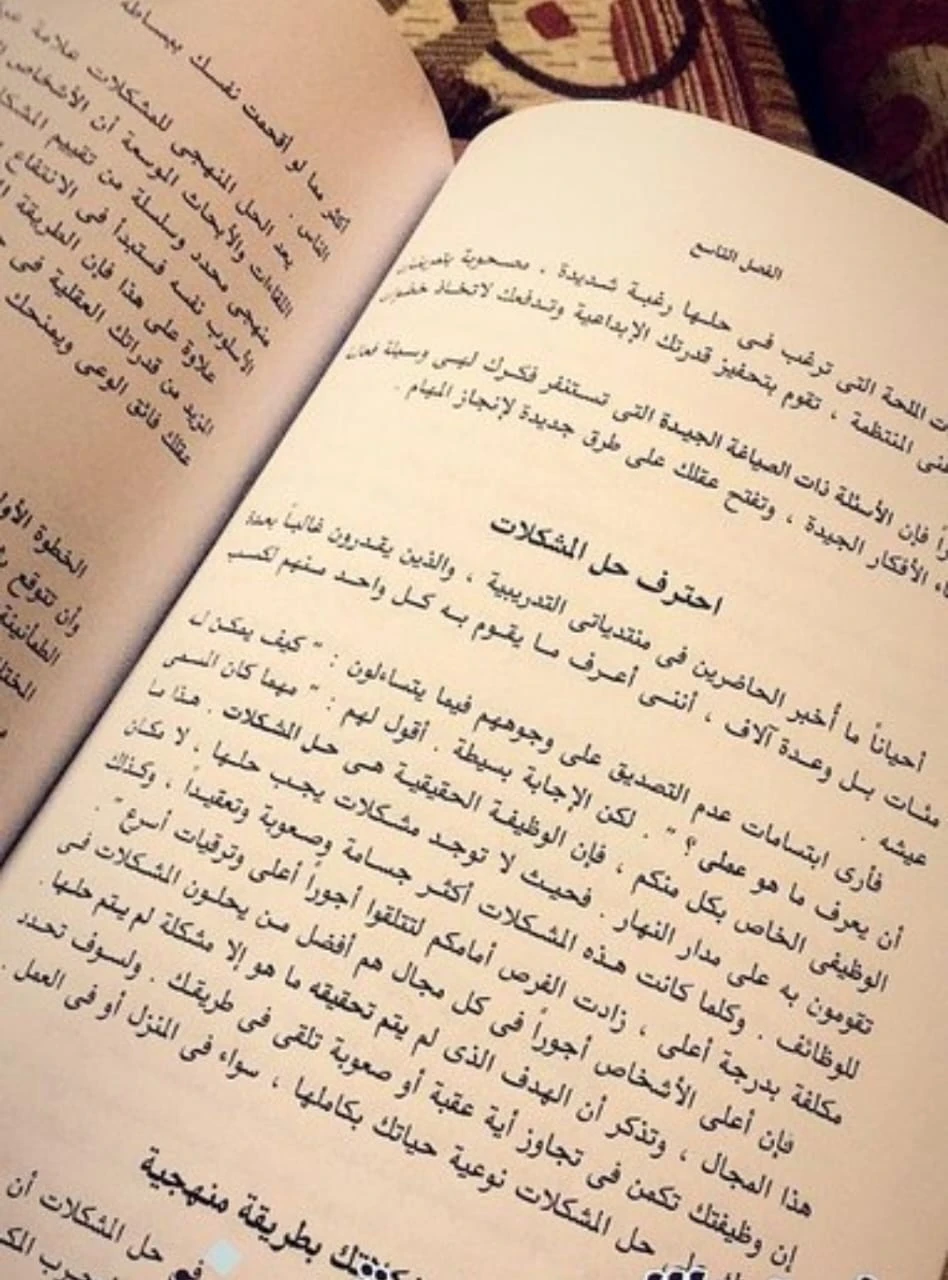 الفصل التاسع
الملحة التى ترغب فى حلها رغبة شديدة ، مصحوبة
المنتظمة ، تقوم بتحفيز قدرتك الإبداعية وتدفعك لاتخاذ
فإن الأسئلة ذات الصياغة الجيدة التى تستنفر فكرك لهى وسيلة
الأفكار الجيدة ، وتفتح عقلك على طرق جديدة لإنجاز المهام .
احترف حل المشكلات
أحياناً ما أخبر الحاضرين فى منتدياتى التدريبية ، والذين يقدرون غالباً بعدة
مئات بل وعدة آلاف ، أننى أعرف ما يقوم به كل واحد منهم لكسب
عيشه .
فأرى ابتسامات عدم التصديق على وجوههم فيما يتساءلون : " كيف يمكن ل
أن يعرف ما هو عملى ؟ " . لكن الإجابة بسيطة . أقول لهم : " مهما كان المسمى
الوظيفى الخاص بكل منكم ، فإن الوظيفة الحقيقية هى حل المشكلات . هذا ما
تقومون به على مدار النهار . فحيث لا توجد مشكلات يجب حلها ، لا مكان
للوظائف . وكلما كانت هذه المشكلات أكثر جسامة وصعوبة وتعقيداً ، وكذلك
مكلفة بدرجة أعلى ، زادت الفرص أمامكم لتتلقوا أجوراً أعلى وترقيات أسرع " .
فإن أعلى الأشخاص أجوراً فى كل مجال هم أفضل من يحلون المشكلات فى
هذا المجال ، وتذكر أن الهدف الذى لم يتم تحقيقه ما هو إلا مشكلة لم يتم حلها .
إن وظيفتك تكمن فى تجاوز أية عقبة أو صعوبة تلقى فى طريقك . ولسوف تحدد
حل المشكلات نوعية حياتك بكاملها ، سواء فى المنزل أو فى العمل .
بطريقة منهجية
فى حل المشكلات أن
أكثر مما لو أقحمت نفسك ببساطة
الناس .
يعد الحل المنهجى للمشكلات علامة
اللقاءات والأبحاث الموسعة أن الأشخاص
منهجى محدد وسلسلة من تقييم
الأسلوب نفسه فستبدأ فى الانتفاع
علاوة على هذا فإن الطريقة
المزيد من قدراتك العقلية فى
عقلك فائق الوعى ويمنحك
الخطوة
وأن تتوقع
الطمأنينة